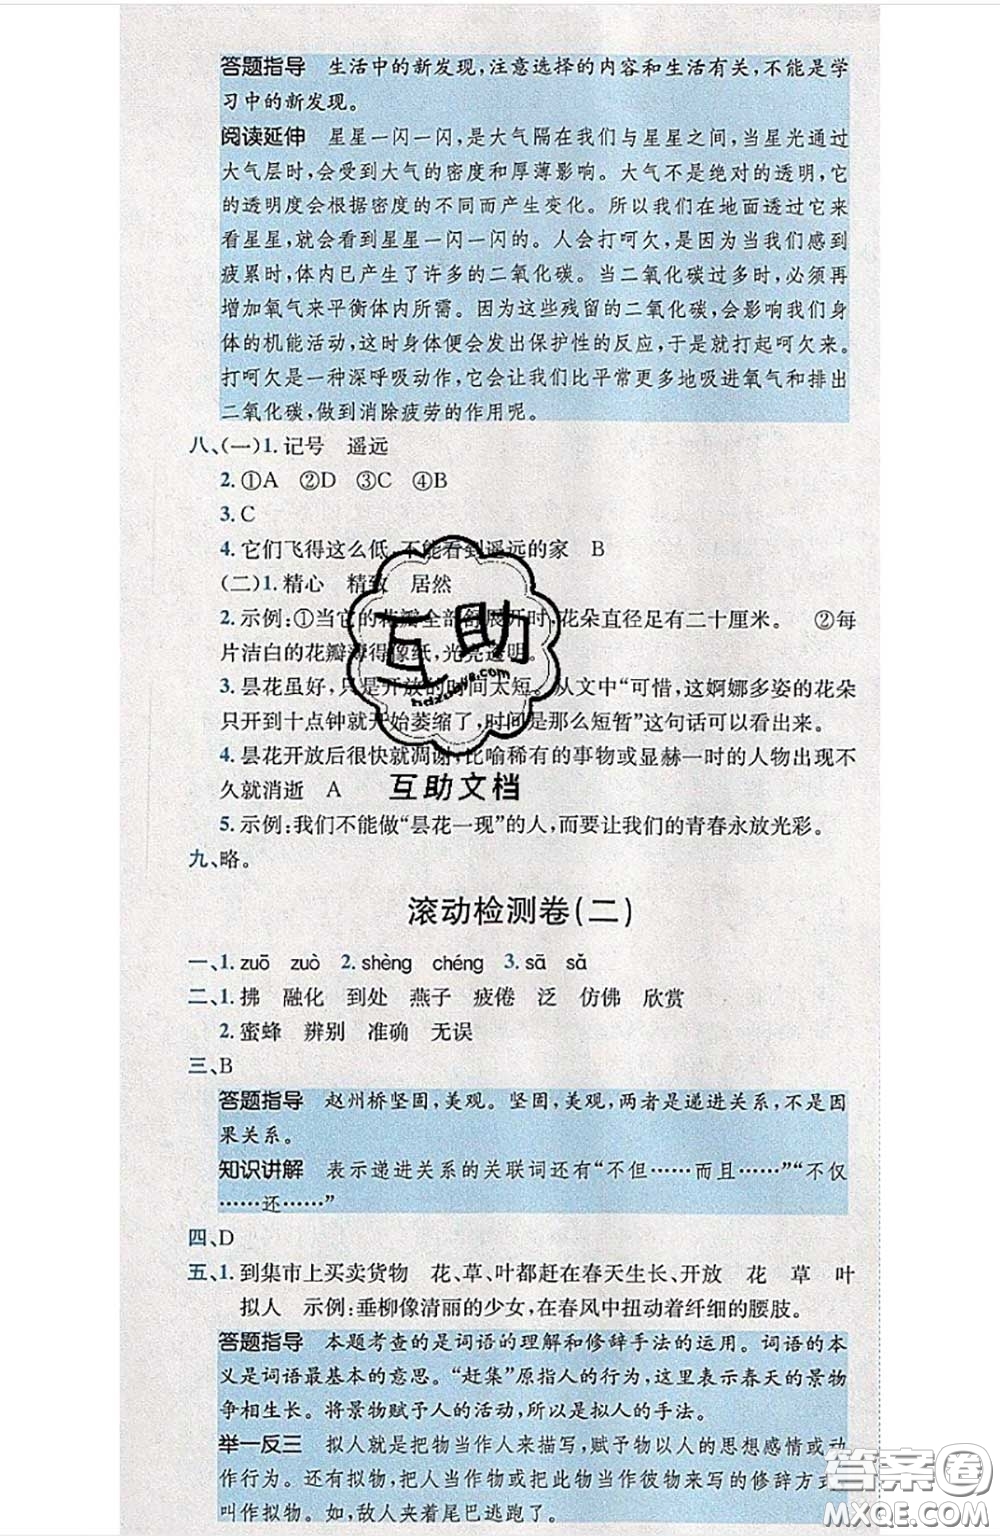 答题指导　生活中的新发现,注意选择的内容和生活有关,不能是学
习中的新发现。
阅读延伸　星星一闪一闪,是大气隔在我们与星星之间,当星光通过
大气层时,会受到大气的密度和厚薄影响。大气不是绝对的透明,它
的透明度会根据密度的不同而产生变化。所以我们在地面透过它来
看星星,就会看到星星一闪一闪的。人会打呵欠,是因为当我们感到
疲累时,体内已产生了许多的二氧化碳。当二氧化碳过多时,必须再
增加氧气来平衡体内所需。因为这些残留的二氧化碳,会影响我们身
体的机能活动,这时身体便会发出保护性的反应,于是就打起呵欠来。
打呵欠是一种深呼吸动作,它会让我们比平常更多地吸进氧气和排出
二氧化碳,做到消除疲劳的作用呢。
八、(一)1.记号　遥远
2.①A　②D　③C　④B
3.C
4.它们飞得这么低,不能看到遥远的家　B
(二)1.精心　精致　居然
2.示例:①当它的花瓣全部舒展开时,花朵直径足有二十厘米。　②每
片洁白的花瓣薄得像纸,光亮透明。
3.昙花虽好,只是开放的时间太短。从文中“可惜,这婀娜多姿的花朵
只开到十点钟就开始萎缩了,时间是那么短暂”这句话可以看出来。
4.昙花开放后很快就凋谢,比喻稀有的事物或显赫一时的人物出现不
久就消逝　A
5.示例:我们不能做“昙花一现”的人,而要让我们的青春永放光彩。
九、略。
互助
hdzuoye.com
互助文档
滚动检测卷(二)
一、1.zuō　zuò　2.shèng　chéng　3.sā　sǎ
二、1.拂　融化　到处　燕子　疲倦　泛　仿佛　欣赏
2.蜜蜂　辨别　准确　无误
三、B
答题指导　赵州桥坚固,美观。坚固,美观,两者是递进关系,不是因
果关系。
知识讲解　表示递进关系的关联词还有“不但……而且……”“不仅
……还……”
四、D
五、1.到集市上买卖货物　花、草、叶都赶在春天生长、开放　花　草　叶
拟人　示例:垂柳像清丽的少女,在春风中扭动着纤细的腰肢。
答题指导　本题考查的是词语的理解和修辞手法的运用。词语的本
义是词语最基本的意思。“赶集”原指人的行为,这里表示春天的景物
争相生长。将景物赋予人的活动,所以是拟人的手法。
举一反三　拟人就是把物当作人来描写,赋予物以人的思想感情或动
作行为。还有拟物,把人当作物或把此物当作彼物来写的修辞方式
叫作拟物。如,敌人夹着尾巴逃跑了。
答案圈
MXQE.COM